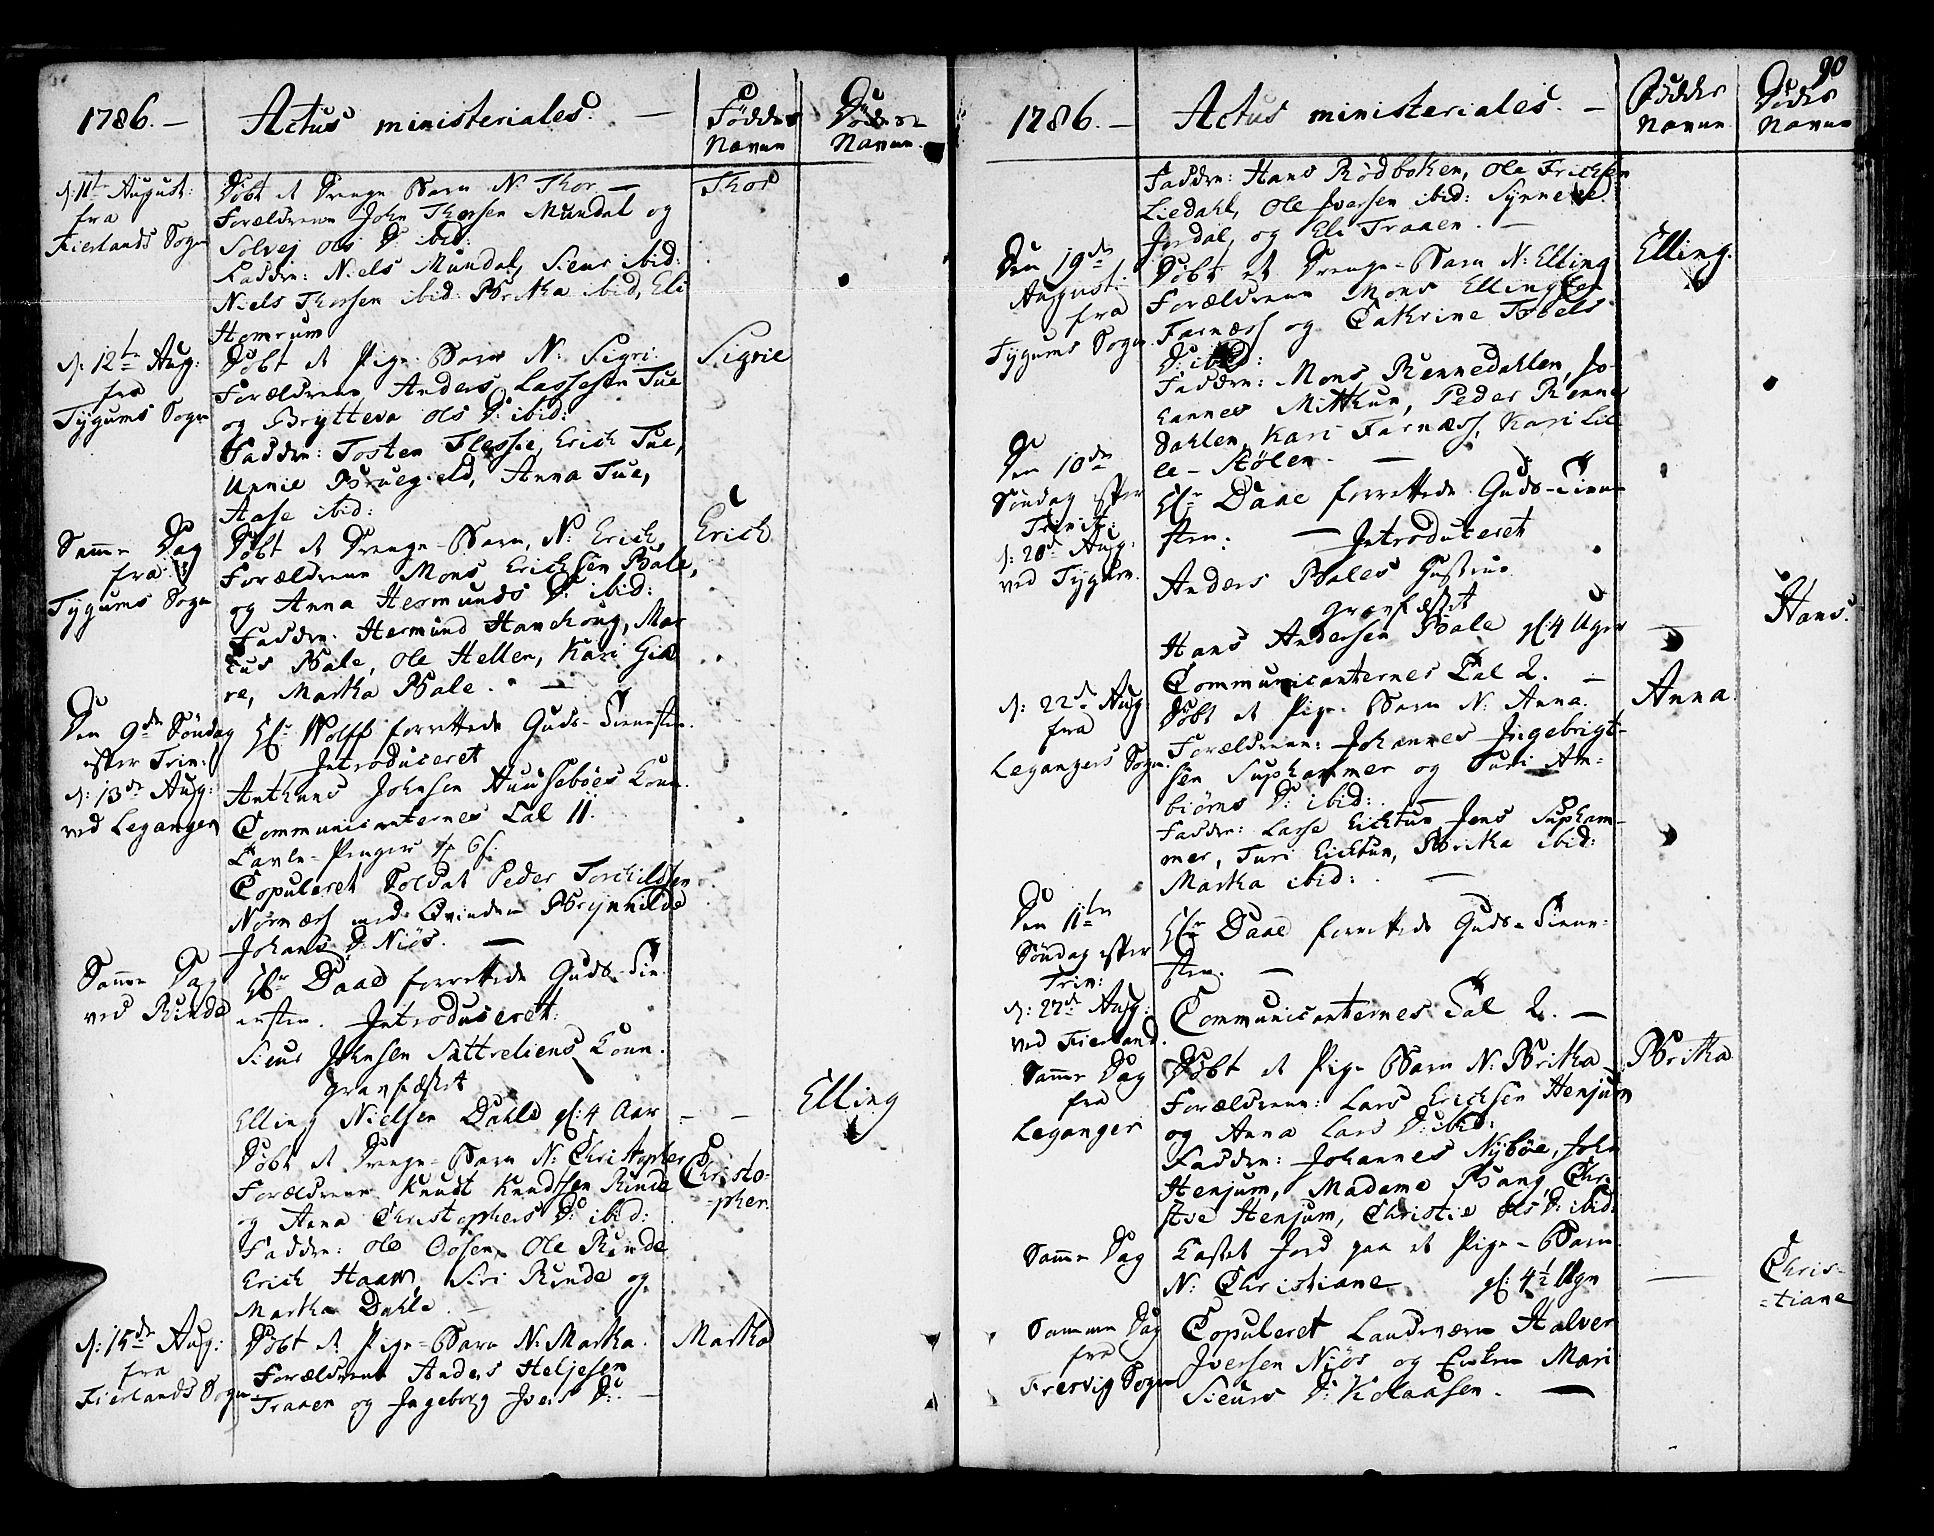 1786. —
Actus ministeriales. —
Föddes Navne
Dödes Navne
d: 11te August: fra Fierlands Sogn
Döbt et Drenge-Barn N: Thor —
Thor
Forældrene John Thorsen Mundal og
Solvej Ols D: ibid:
Faddre: Niels Mundal, Siur ibid:
Niels Thorsen ibid: Britha ibid, Eli
Homrum
d: 12te Aug: fra Tygums Sogn
Döbt et Pige-Barn N: Sigri
Sigrie
Forældrene Anders Lassesen Tue
og Brytteva Ols D: ibid:
Faddre: Tosten Flesse, Erich Tue,
Unnie Bruegield, Anna Tue,
Aase ibid:
Samme Dag fra Tygums Sogn
Döbt et Drenge-Barn, N: Erich,
Erich
Forældrene Mons Erichsen Bale,
og Anna Hermunds D: ibid:
Faddre: Hermund Hamchoug, Mar
cus Bale, Ole Hellen, Kari Giæ
re, Martha Bale. —
Den 9de Söndag efter Trin: d: 13de Aug: ved Leganger
Hr Wolff forrettede Guds-Tienesten.
Introduceret
Anthuns Johnsen Huuseböes Kone.
Communicanternes Tal 11.
Tavle-Penger
Copuleret Soldat Peder Torchildsen
Nornæss med Qvinden Brynhilde
Johans D: Niös. —
Samme Dag ved Rinde
Hr Daae forrettede Guds-Tie
nesten. Introduceret:
Siurs Johnsen Sættreliens Kone.
Gravfæstet
Elling Nielsen Dahle gl: 4 Aar — —
Elling
Döbt et Drenge-Barn N: Christopher
Christo-
-pher:
Forældrene Knudt Knudtsen Rinde
og Anna Christophers D: ibid:
Faddre: Ole Oosen, Ole Rinde
Erich Haavn, Siri Rinde og
Martha Dahle. —
d: 15de Aug: fra Fierlands Sogn
Döbt et Pige-Barn N: Martha.
Martha
Forældrene Anders Heljesen
Traaen og Ingeborg Ivers D: —
90
1786. —
Actus ministeriales. —
Föddes Navne
Dödes Navne
Faddre: Hans Rödboken, Ole Erichsen
Liedahl, Ole Iversen ibid: Synneve
Jordal, og Eli Traaen. —
Den 19de August: fra Tygums Sogn.
Döbt et Drenge-Barn N: Elling
Elling.
Forældrene Mons Ellingsen
Farnæss og Cathrine Tobels
D: ibid:
Faddre: Mons Rennedahlen, Jo
hannes Mitthun, Peder Renne
Dahlen, Kari Farnæss, Kari Lil
le-Stölen. —
Den 10de Söndag efter Trinit: d: 20de Aug: ved Tygum.
Hr Daae forrettede Guds-Tiene
sten: — Introduceret
Anders Bales Hustrue
Gravfæstet
Hans Andersen Bale gl: 4 Uger —
Hans.
Communicanternes Tal 2. —
d: 22de Aug fra Legangers Sogn.
Döbt et Pige-Barn N: Anna.
Anna.
Forældrene: Johannes Ingebrigt-
sen Suphammer og Turi Am=
biörns D: ibid: —
Faddre: Lasse Eichtun, Jens Supham-
mer, Turi Eichtun, Britha ibid:
Martha ibid: —
Den 11te Söndag efter Trin: d: 27de Aug: ved Fierland.
Hr Daae forrettede Guds-Tiene-
sten. —
Communicanternes Tal 2. —
Samme Dag fra Leganger
Döbt et Pige Barn N: Britha
Britha
Forældrene: Lars Erichsen Henjum
og Anna Lars D: ibid:
Faddre: Johannes Nyböe, John
Henjum, Madame Bang, Chri
stve Henjum, Christie Ols D: ibid:
Samme Dag
Kastet Jord paa et Pige-Barn
N: Christiane gl: 4½ Uger —
Chris-
-tiane
Samme Dag fra Fresvig Sogn
Copuleret Landværn Halver
Iversen Niös og Enken Mari
Siurs D: Kolaasen. —